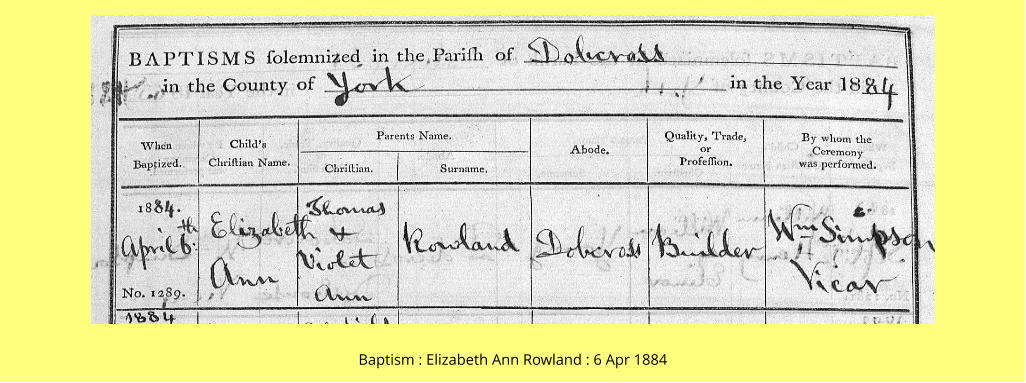 BAPTISMS solemnized in the Parish of Dobcross
in the County of York in the Year 1884
When Baptized.
Child's Christian Name.
Parents Name.
Christian.
Surname.
Abode.
Quality, Trade, or Profession.
By whom the Ceremony was performed.
1884.
April 6th
No. 1289.
Elizabeth
Ann
Thomas
&
Violet
Ann
Rowland
Dobcross
Builder
Wm Simpson
Vicar
1884
Baptism : Elizabeth Ann Rowland : 6 Apr 1884